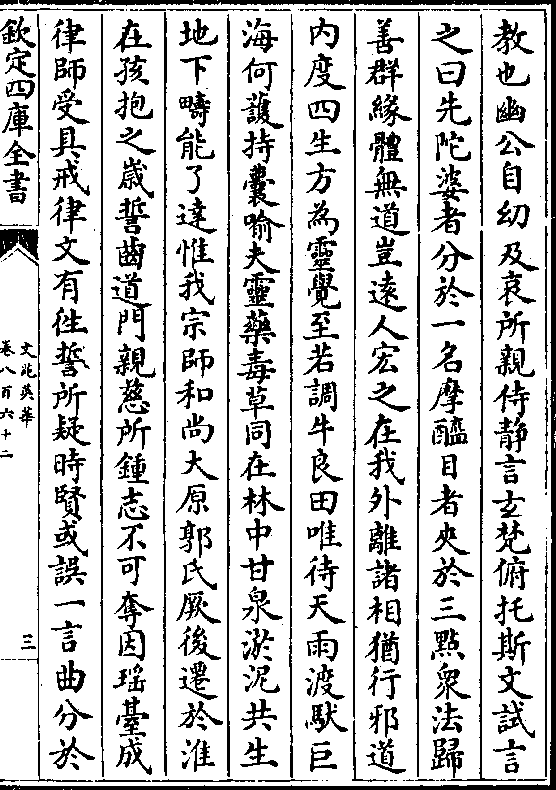 教也幽公自幼及衰所親侍静言玄梵俯托斯文試言
之曰先陀婆者分於一名摩醯目者夾於三點衆法歸
善群緣體無道豈遠人宏之在我外離諸相猶行邪道
内度四生方為靈覺至若調牛良田唯待天雨渡馱巨
海何護持囊喻夫靈藥毒草同在林中甘泉淤泥共生
地下疇能了達惟我宗師和尚大原郭氏厥後遷於淮
在孩抱之嵗誓齒道門親慈所鍾志不可奪因瑶臺成
律師受具戒律文有徃誓所疑時賢或誤一言曲分於
欽定四庫全書
文苑英華
卷八百六十二
三